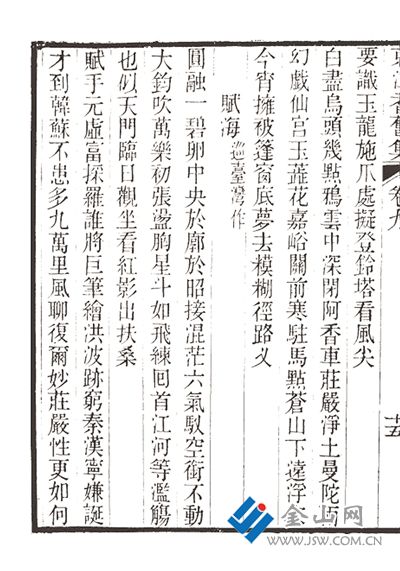 卷九
要識玉龍施爪處擬登鈴塔看風尖
白盡烏頭幾點鴉雲中深閉阿香車莊嚴淨土曼陀
幻戲仙宮玉蕋花嘉峪關前寒駐馬點蒼山下遠浮
今宵擁被篷窗底夢去模糊徑路义
賦海 巡臺灣作
圓融一碧卵中央於廓於昭接混茫六氣馭空銜不動
大鈞吹萬樂初張盪胸星斗如飛練回首江河等濫觴
也似天門臨日觀坐看紅影出扶桑
賦手元虛富探羅誰將巨筆繪洪波跡窮秦漢寧嫌誕
才到韓蘇不患多九萬里風聊復爾妙莊嚴性更如何
金山网
WWW.JSW.COM.CN